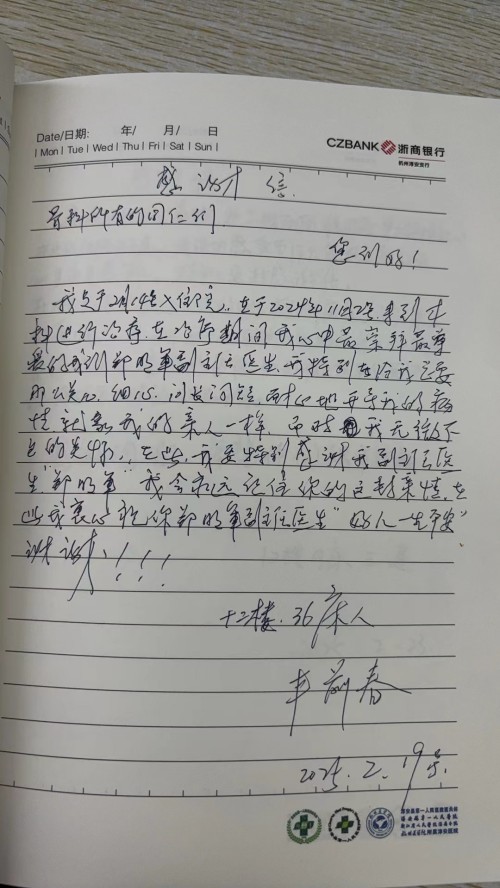 Date/日期: 年/ 月/ 日
| Mon | Tue | Wed | Thu | Fri | Sat | Sun |
CZBANK 浙商银行
杭州淳安支行
感谢信
骨科所有的同仁们
您们好!
我与于2月14号入住院,在于2024年11月2号来到本
科进行治疗,在治疗期间我心中最崇拜最尊
敬的我到郑明军副主任医生,我特别在治疗
关心,细心,问长问短,耐心地开导我的病
情就象我的亲人一样,而时我无微不
至的关怀,在此,我要特别感谢我副主任医
生"郑明军 我会永远记住你的这封亲情,在
此我衷心祝你郑明军副主任医生"好人一生平安"
谢谢!!!!
十二楼.36床人
前春
2025.2.19号.